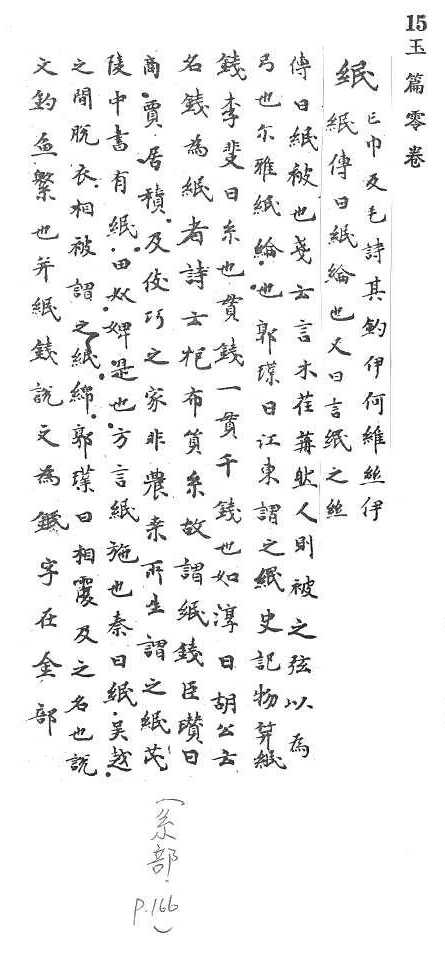 15 玉篇零卷
緡 亡巾反毛詩其釣伊何維絲伊
緡傳曰緡綸也又曰言緡之絲
傳曰緡被也箋云言木荏苒然人則被之弦以為
弓也尔雅緡綸也郭璞曰江東謂之緡史記物筭緡
錢李斐曰糸也貫錢一貫千錢也如淳曰胡公云
名錢為緡者詩云抱布貿糸故謂緡錢臣瓚曰
商賈居積及伎巧之家非農桒所生謂之緡茂
陵中書有緡田奴婢是也方言緡施也秦曰緡吴越
之間脫衣相被謂之緡緜郭璞曰相覆及之名也說
文釣魚繁也弁緡錢說文為鍲字在金部
(糸部 P.166)